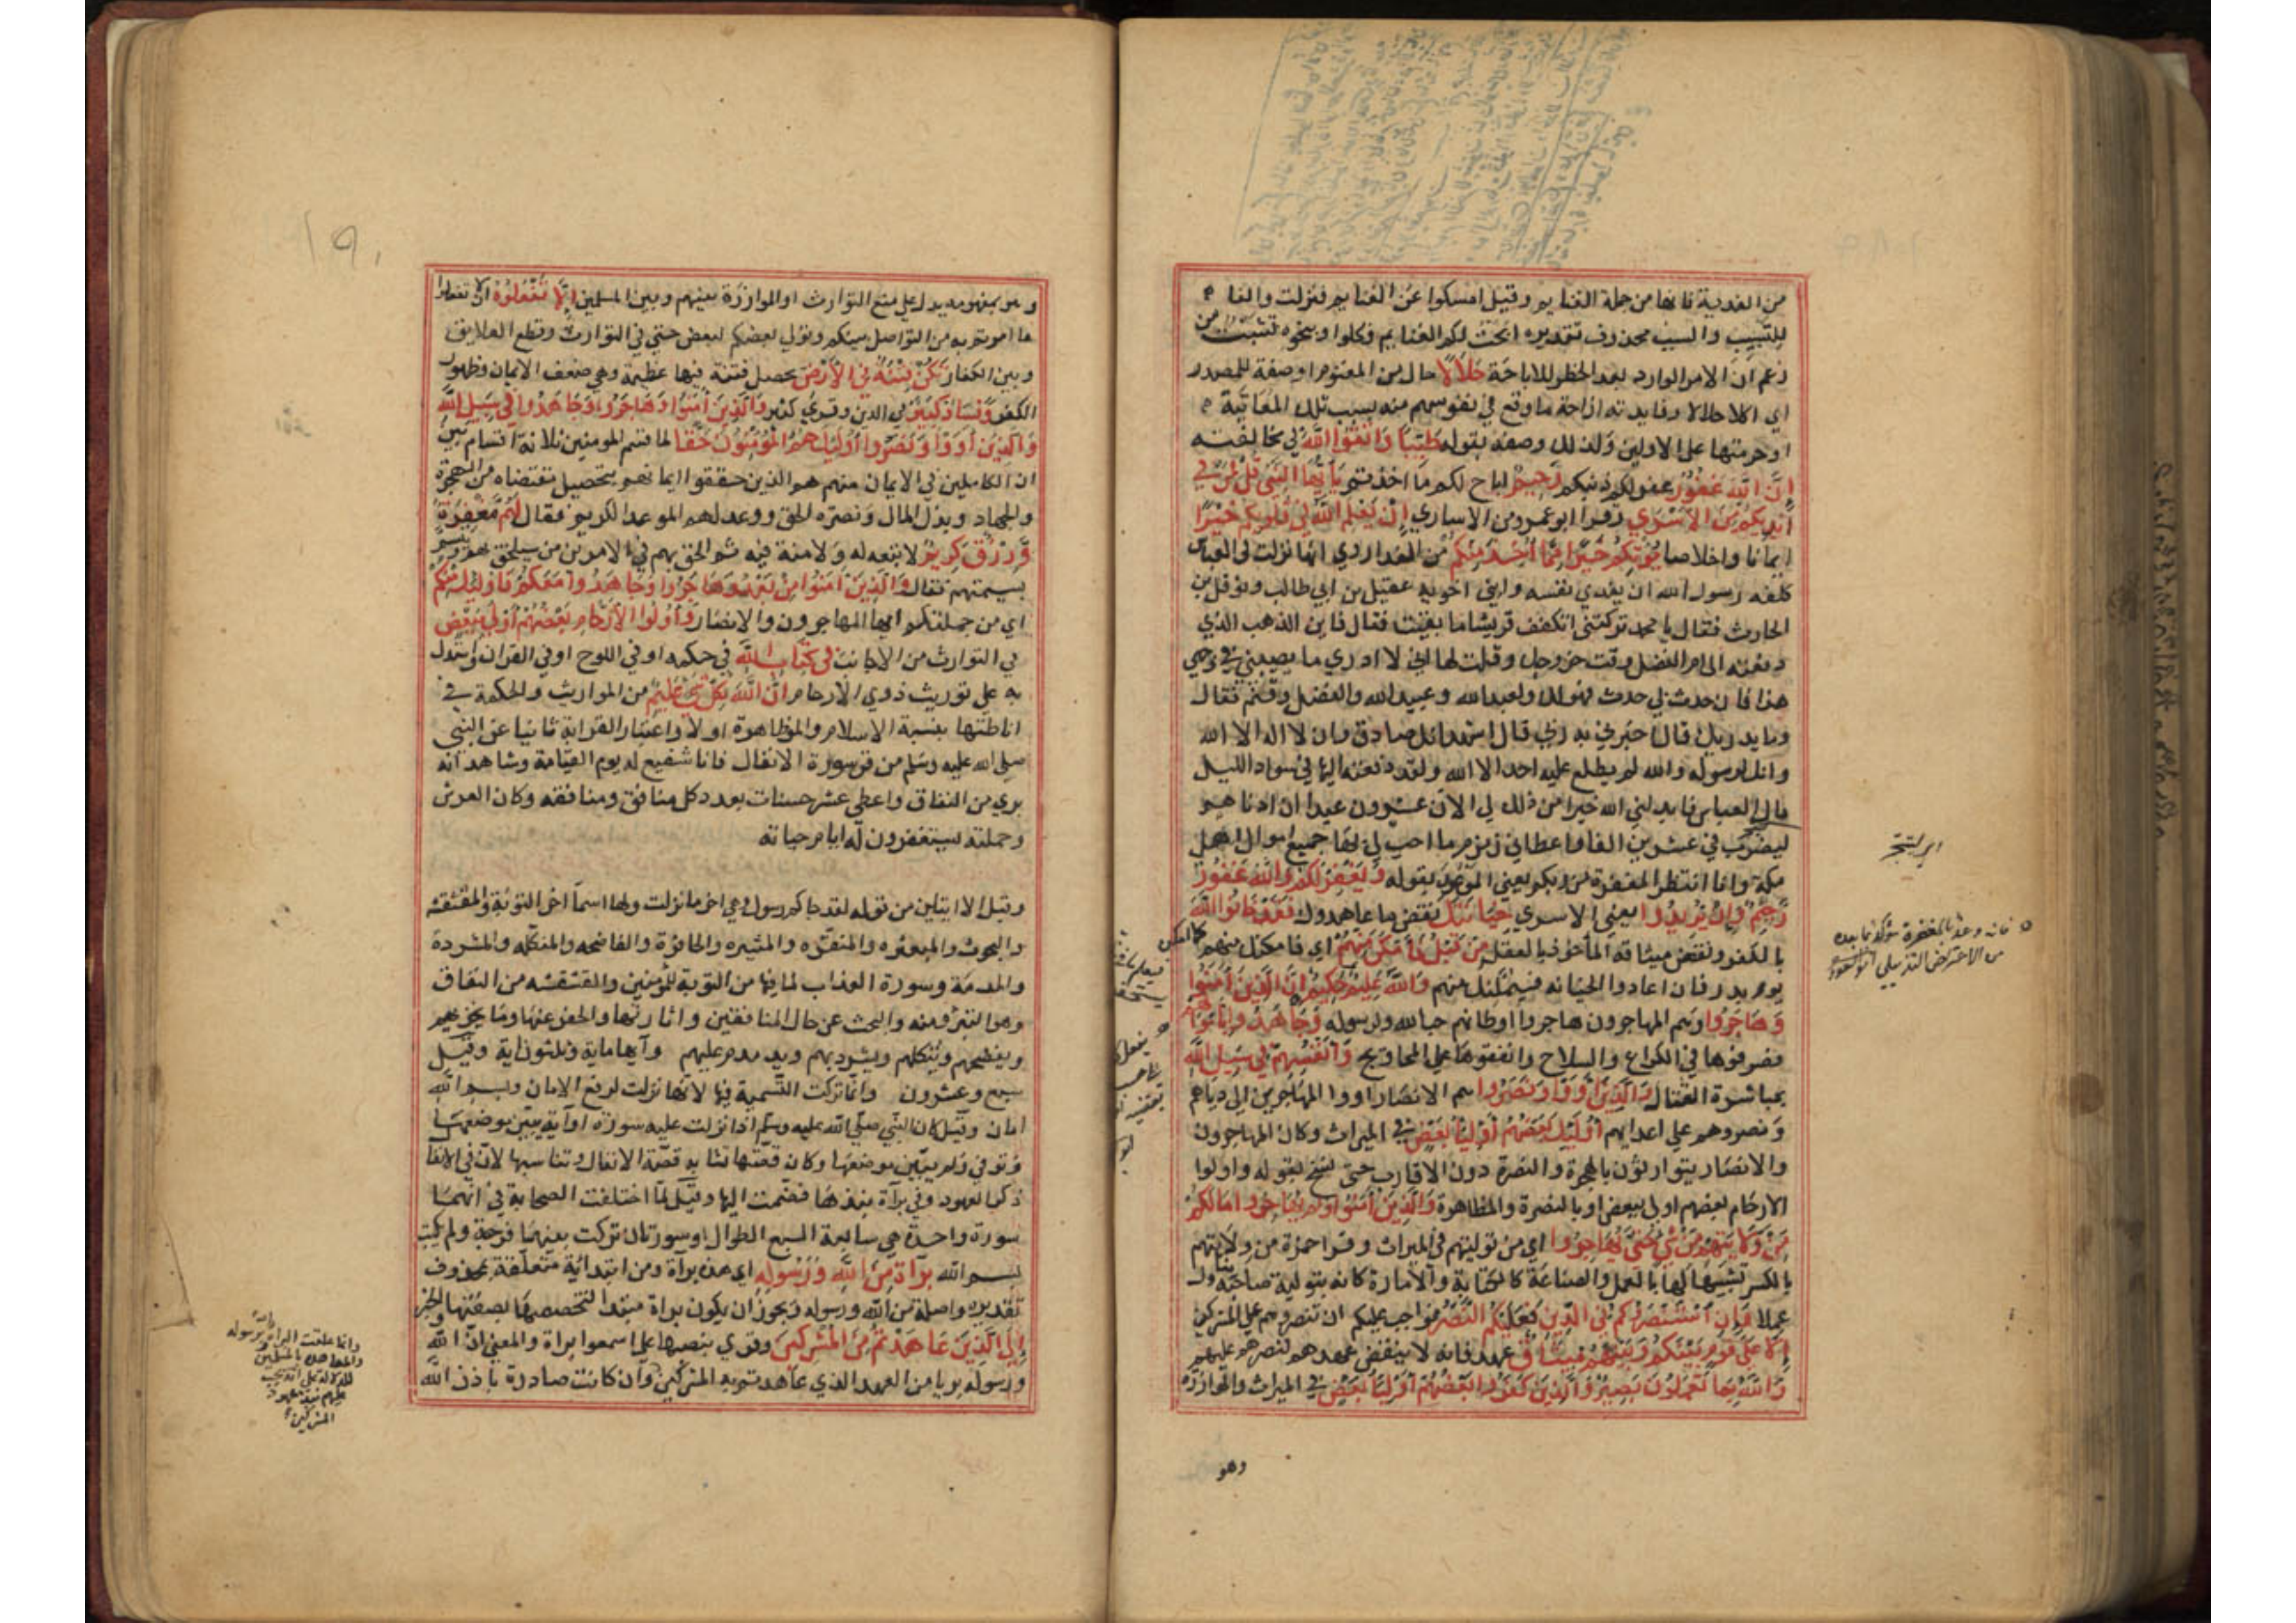 من الفدية فانها من جملة الغنايم وقيل امسكوا عن الغنايم فنزلت والفا
للتسبيب والسبب محذوف تقديره ابحت لكم الغنايم فكلوا وبنحوه تشبث من
زعم ان الامر الوارد بعد الحظر للاباحة حَلَالًا حال من المغنوم او صفة للمصدر
اي اكلا حلالا وفايدته ازاحة ما وقع في نفوسهم منه بسبب تلك المعاتبة
او حرمتها على الاولين ولذلك وصفه بقوله طَيِّبًا وَاتَّقُوا اللَّهَ في مخالفته
إِنَّ اللَّهَ غَفُورٌ غفر لكم ذنبكم رَحِيمٌ اباح لكم ما اخذتم يَا أَيُّهَا النَّبِيُّ قُلْ لِمَنْ فِي
أَيْدِيكُمْ مِنَ الْأَسْرَى وقرا ابو عمرو من الاساري إِنْ يَعْلَمِ اللَّهُ فِي قُلُوبِكُمْ خَيْرًا
ايمانا واخلاصا يُؤْتِكُمْ خَيْرًا مِمَّا أُخِذَ مِنْكُمْ من الفدا روي انها نزلت في العباس
كلفه رسول الله ان يفدي نفسه وابني اخويه عقيل بن ابي طالب ونوفل بن
الحارث فقال يا محمد تركتني اتكفف قريشا ما بقيت فقال فاين الذهب الذي
دفعته الى ام الفضل وقت خروجك وقلت لها اني لا ادري ما يصيبني في وجهي
هذا فان حدث بي حدث فهو لك ولعبدالله وعبيدالله والفضل وقثم فقال
وما يدريك قال اخبرني به ربي قال اشهد انك صادق وان لا اله الا الله
وانك لرسوله والله لم يطلع عليه احد الا الله ولقد دفعته اليها في سواد الليل
قال العباس فابدلني الله خيرا من ذلك لي الآن عشرون عبدا ان ادناهم
ليضرب في عشرين الفا واعطاني زمزم ما احب ان لي بها جميع اموال اهل
مكة وانا انتظر المغفرة من ربكم يعني الموعود بقوله وَيَغْفِرْ لَكُمْ وَاللَّهُ غَفُورٌ
رَحِيمٌ وَإِنْ يُرِيدُوا يعني الاسري خِيَانَتَكَ بنقض ما عاهدوك فَقَدْ خَانُوا اللَّهَ
بالكفر ونقض ميثاقه المأخوذ بالعقل مِنْ قَبْلُ فَأَمْكَنَ مِنْهُمْ اي فامكنك منهم
يوم بدر فان اعادوا الخيانة فسيمكنك منهم وَاللَّهُ عَلِيمٌ حَكِيمٌ إِنَّ الَّذِينَ آمَنُوا
وَهَاجَرُوا وهم المهاجرون هاجروا اوطانهم حبا لله ولرسوله وَجَاهَدُوا بِأَمْوَالِهِمْ
فصرفوها في الكراع والسلاح وانفقوها على المحاويج وَأَنْفُسِهِمْ فِي سَبِيلِ اللَّهِ
بمباشرة القتال وَالَّذِينَ آوَوْا وَنَصَرُوا هم الانصار اووا المهاجرين الى ديارهم
ونصروهم على اعدايهم أُولَئِكَ بَعْضُهُمْ أَوْلِيَاءُ بَعْضٍ في الميراث وكان المهاجرون
والانصار يتوارثون بالهجرة والنصرة دون الاقارب حتى نسخ بقوله واولوا
الارحام بعضهم اولى ببعض او بالنصرة والمظاهرة وَالَّذِينَ آمَنُوا وَلَمْ يُهَاجِرُوا مَا لَكُمْ
مِنْ وَلَايَتِهِمْ مِنْ شَيْءٍ حَتَّى يُهَاجِرُوا اي من توليتهم في الميراث وقرا حمزة من ولايتهم
بالكسر تشبيها لها بالعمل والصناعة كالكتابة والامارة كانه بتوليه صاحبه يزاول
عملا وَإِنِ اسْتَنْصَرُوكُمْ فِي الدِّينِ فَعَلَيْكُمُ النَّصْرُ فواجب عليكم ان تنصروهم على المشركين
إِلَّا عَلَى قَوْمٍ بَيْنَكُمْ وَبَيْنَهُمْ مِيثَاقٌ عهد فانه لا ينقض عهدهم لنصرهم عليهم
وَاللَّهُ بِمَا تَعْمَلُونَ بَصِيرٌ وَالَّذِينَ كَفَرُوا بَعْضُهُمْ أَوْلِيَاءُ بَعْضٍ في الميراث والموازرة
وهو
فانه وعد بالمغفرة مؤكد لما بعده
من الاعتراض التذييلي ابو السعود
١٩٠
وهو بمفهومه يدل على منع التوارث او الموازرة بينهم وبين المسلمين إِلَّا تَفْعَلُوهُ الا تفعلوا
ما امرتم به من التواصل بينكم وتولي بعضكم لبعض حتى في التوارث وقطع العلايق
وبين الكفار تَكُنْ فِتْنَةٌ فِي الْأَرْضِ تحصل فتنة فيها عظيمة وهي ضعف الايمان وظهور
الكفر وَفَسَادٌ كَبِيرٌ في الدين وقري كثير وَالَّذِينَ آمَنُوا وَهَاجَرُوا وَجَاهَدُوا فِي سَبِيلِ اللَّهِ
وَالَّذِينَ آوَوْا وَنَصَرُوا أُولَئِكَ هُمُ الْمُؤْمِنُونَ حَقًّا لما قسم المومنين ثلاثة اقسام بين
ان الكاملين في الايمان منهم هم الذين حققوا ايمانهم بتحصيل مقتضاه من الهجرة
والجهاد وبذل المال ونصرة الحق ووعد لهم الموعد الكريم فقال لَهُمْ مَغْفِرَةٌ
وَرِزْقٌ كَرِيمٌ لا تبعه له ولا منة فيه ثم الحق بهم في الامرين من سيلحق بهم ويتسم
بسمتهم فقال وَالَّذِينَ آمَنُوا مِنْ بَعْدُ وَهَاجَرُوا وَجَاهَدُوا مَعَكُمْ فَأُولَئِكَ مِنْكُمْ
اي من جملتكم ايها المهاجرون والانصار وَأُولُوا الْأَرْحَامِ بَعْضُهُمْ أَوْلَى بِبَعْضٍ
في التوارث من الاجانب فِي كِتَابِ اللَّهِ في حكمه او في اللوح او في القران واستدل
به على توريث ذوي الارحام إِنَّ اللَّهَ بِكُلِّ شَيْءٍ عَلِيمٌ من المواريث والحكمة في
اناطتها بنسبة الاسلام والمظاهرة اولا واعتبار القرابة ثانيا عن النبي
صلى الله عليه وسلم من قرا سورة الانفال فانا شفيع له يوم القيامة وشاهد انه
بري من النفاق واعطي عشر حسنات بعدد كل منافق ومنافقه وكان العرش
وحملته يستغفرون له ايام حياته
وقيل الا ايتين من قوله لقد جاكم رسول وهي اخر ما نزلت ولها اسما اخر التوبة والمقشقشة
والبحوث والمبعثرة والمنقرة والمثيرة والحافرة والفاضحه والمنكله والمشردة
والمدمدمة وسورة العذاب لما فيها من التوبة للمومنين والمقشقشة من النفاق
وهو التبرؤ منه والبحث عن حال المنافقين واثارتها والحفر عنها وما يخزيهم
ويفضحهم وينكلهم ويشردبهم ويدمدم عليهم وآيها ماية وثلثون اية وقيل
تسع وعشرون وانما تركت التسمية فيها لانها نزلت لرفع الامان وبسم الله
امان وقيل كان النبي صلى الله عليه وسلم اذا نزلت عليه سورة او آية بين موضعها
وتوفي ولم يبين موضعها وكانت قصتها تشابه قصة الانفال وتناسبها لان في الانفال
ذكر العهود وفي برآة نبذها فضمت اليها وقيل لما اختلفت الصحابة في انهما
سورة واحدة هي سابعة السبع الطوال او سورتان تركت بينهما فرجة ولم يكتب
بسم الله بَرَآءَةٌ مِنَ اللَّهِ وَرَسُولِهِ اي هذه برآة ومن ابتدائية متعلقة بمحذوف
تقديره واصلة من الله ورسوله ويجوز ان يكون براة مبتدا لتخصصها بصفتها والخبر
إِلَى الَّذِينَ عَاهَدْتُمْ مِنَ الْمُشْرِكِينَ وقري بنصبها على اسمعوا براة والمعنى ان الله
ورسوله بريا من العهد الذي عاهدتم به المشركين وان كانت صادرة باذن الله
وانما علقت البراة بالله ورسوله
والمعاهدة بالمسلمين
للدلالة على انه يجب
عليهم نبذ عهود
المشركين